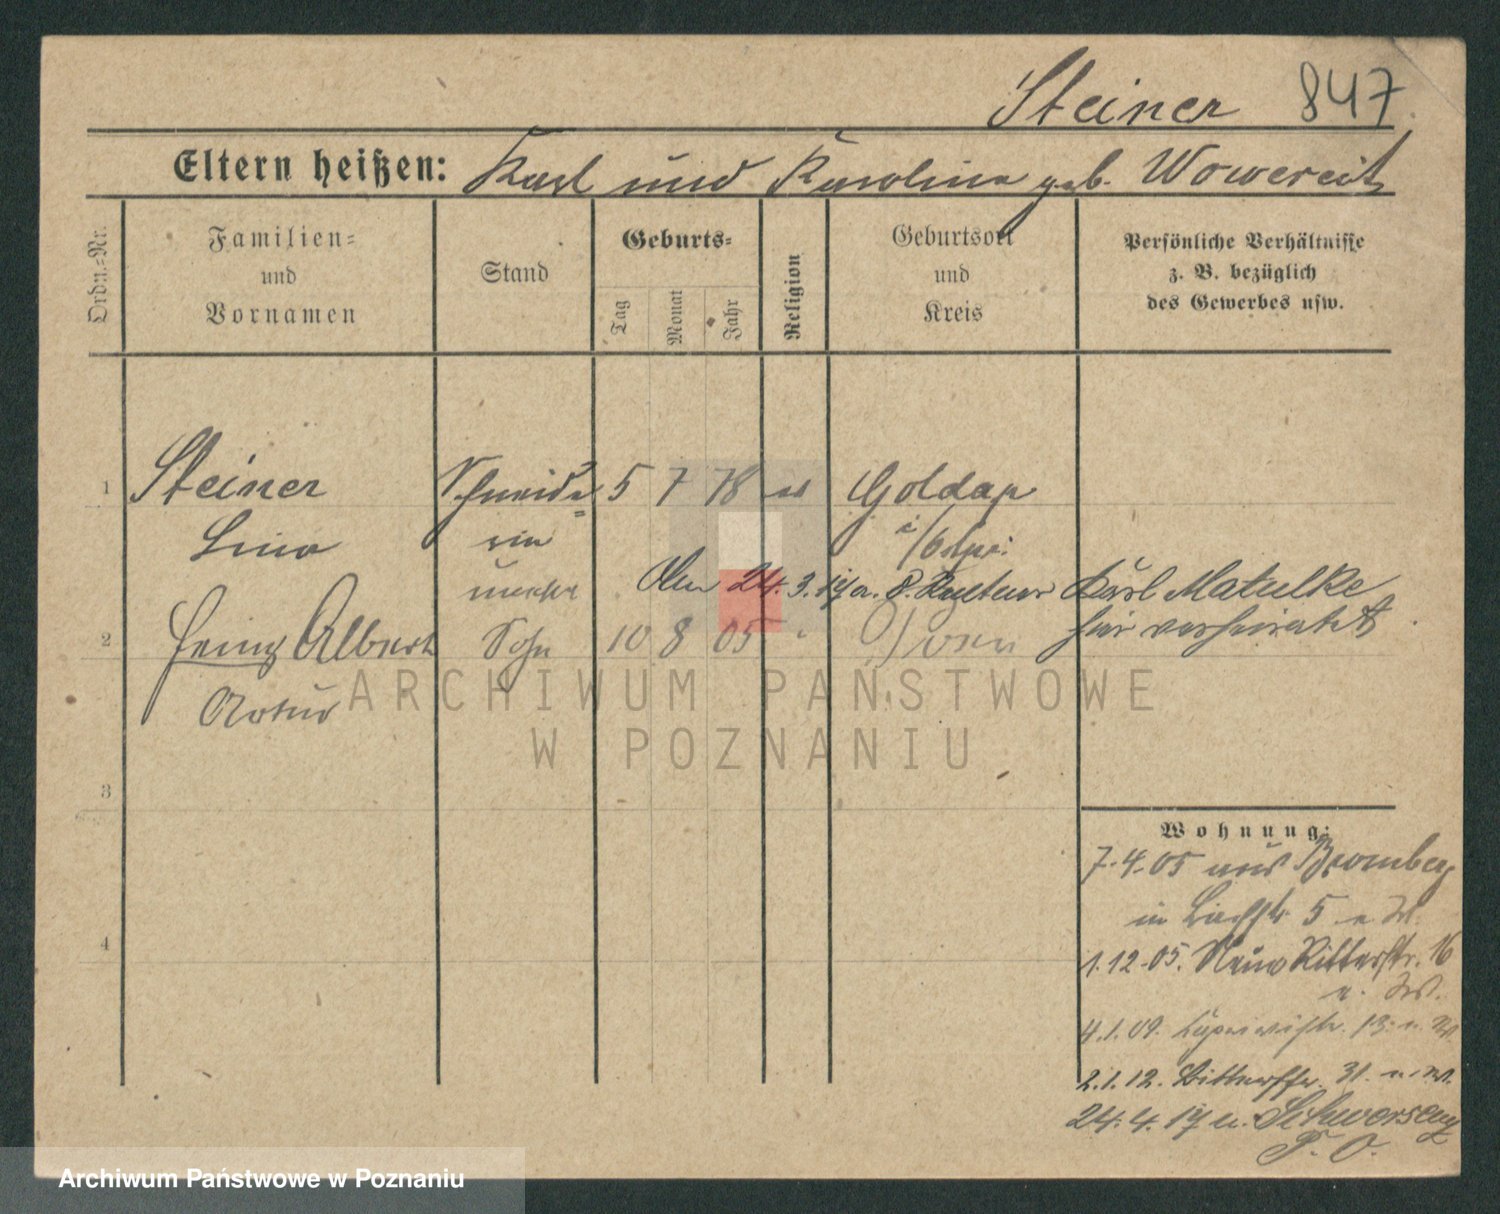 Steiner 847
Eltern heißen: Karl und Karoline geb. Wowereit
Ordn.=Nr.
Familien=
und
Vornamen
Stand
Geburts=
Tag
Monat
Jahr
Religion
Geburtsort
und
Kreis
Persönliche Verhältnisse
z. B. bezüglich
des Gewerbes usw.
1 Steiner Schneide= 5 7 78 ev Goldap
Lina rin i/Ostpr.
24. 3. 19 Karl Matulke
hier verheiratet
2 Heinz Albert Sohn 10 8 05 " Posen
Artur
3
4
Wohnung:
7.4.05 aus Bromberg
in 5
1.12.05. Neue Ritterstr. 16
4.1.09. 13
2.1.12. Bitterstr. 31
24.4.19 n. Schwersenz
P. O.
ARCHIWUM PAŃSTWOWE
W POZNANIU
Archiwum Państwowe w Poznaniu